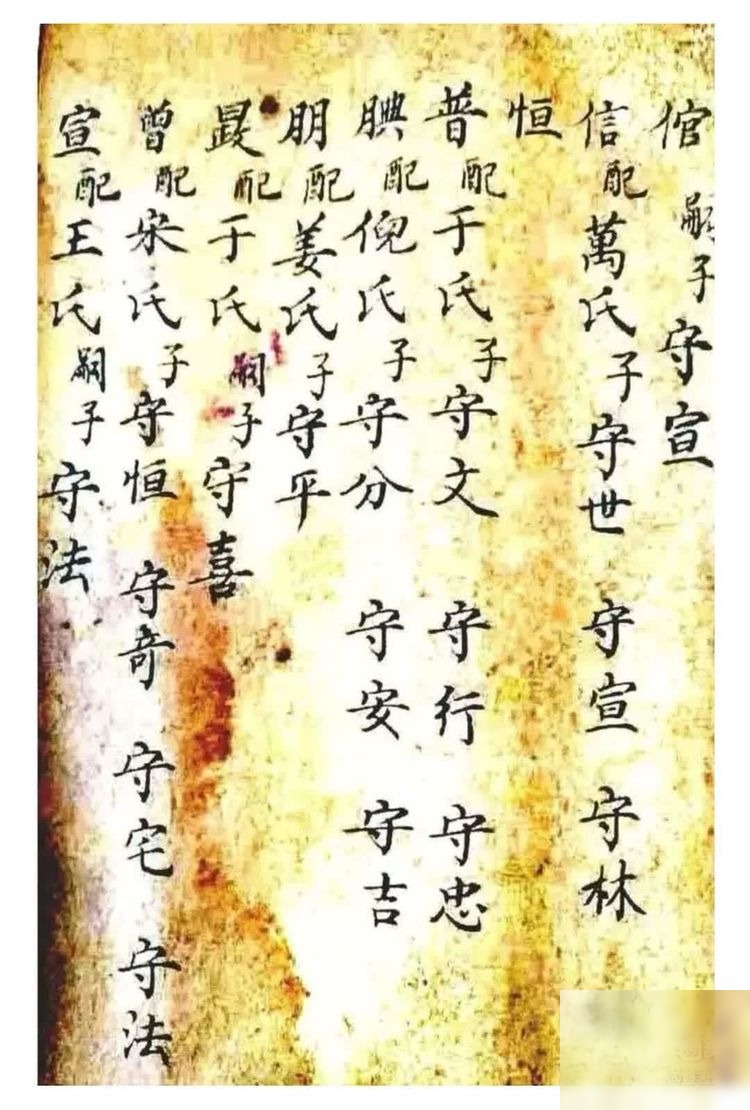 倌 嗣子守宣
信配萬氏子守世 守宣 守林
恒
普配于氏子守文 守行 守忠
腆配倪氏子守分 守安 守吉
朋配姜氏子守平
配于氏嗣子守喜
曾配宋氏子守恒 守奇 守宅 守法
宣配王氏嗣子守法